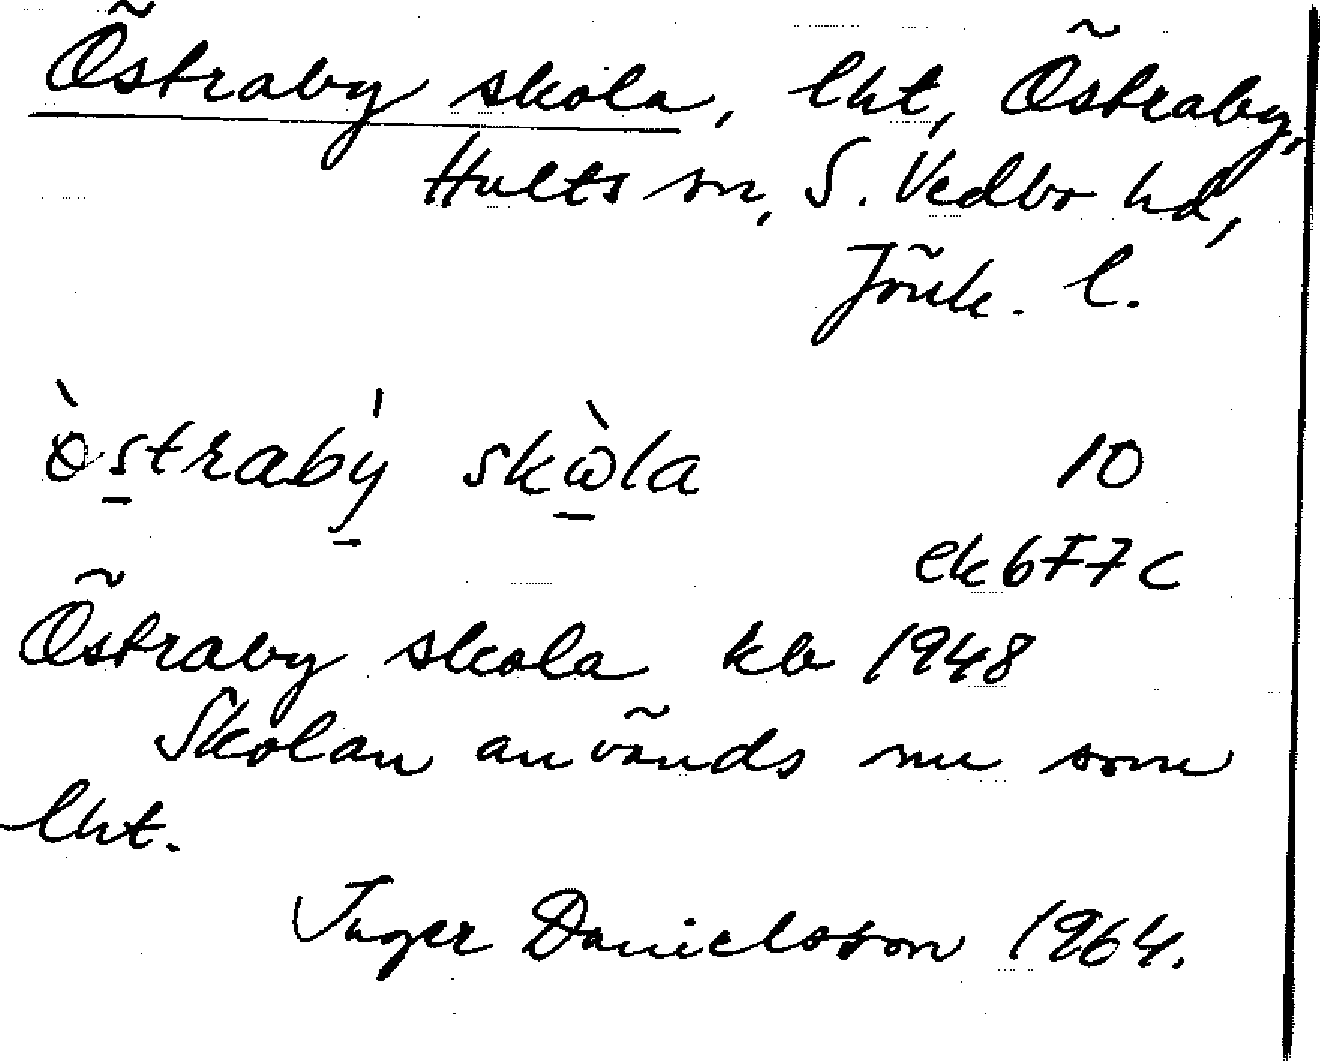 Östraby skola, lht, Östraby,
Hults sn, S. Vedbo hd,
Jönk. l.
ö̀strabý skὼla 10
ek 6F7c
Östraby skola kb 1948
Skolan används nu som
lht.
Inger Danielsson 1964.